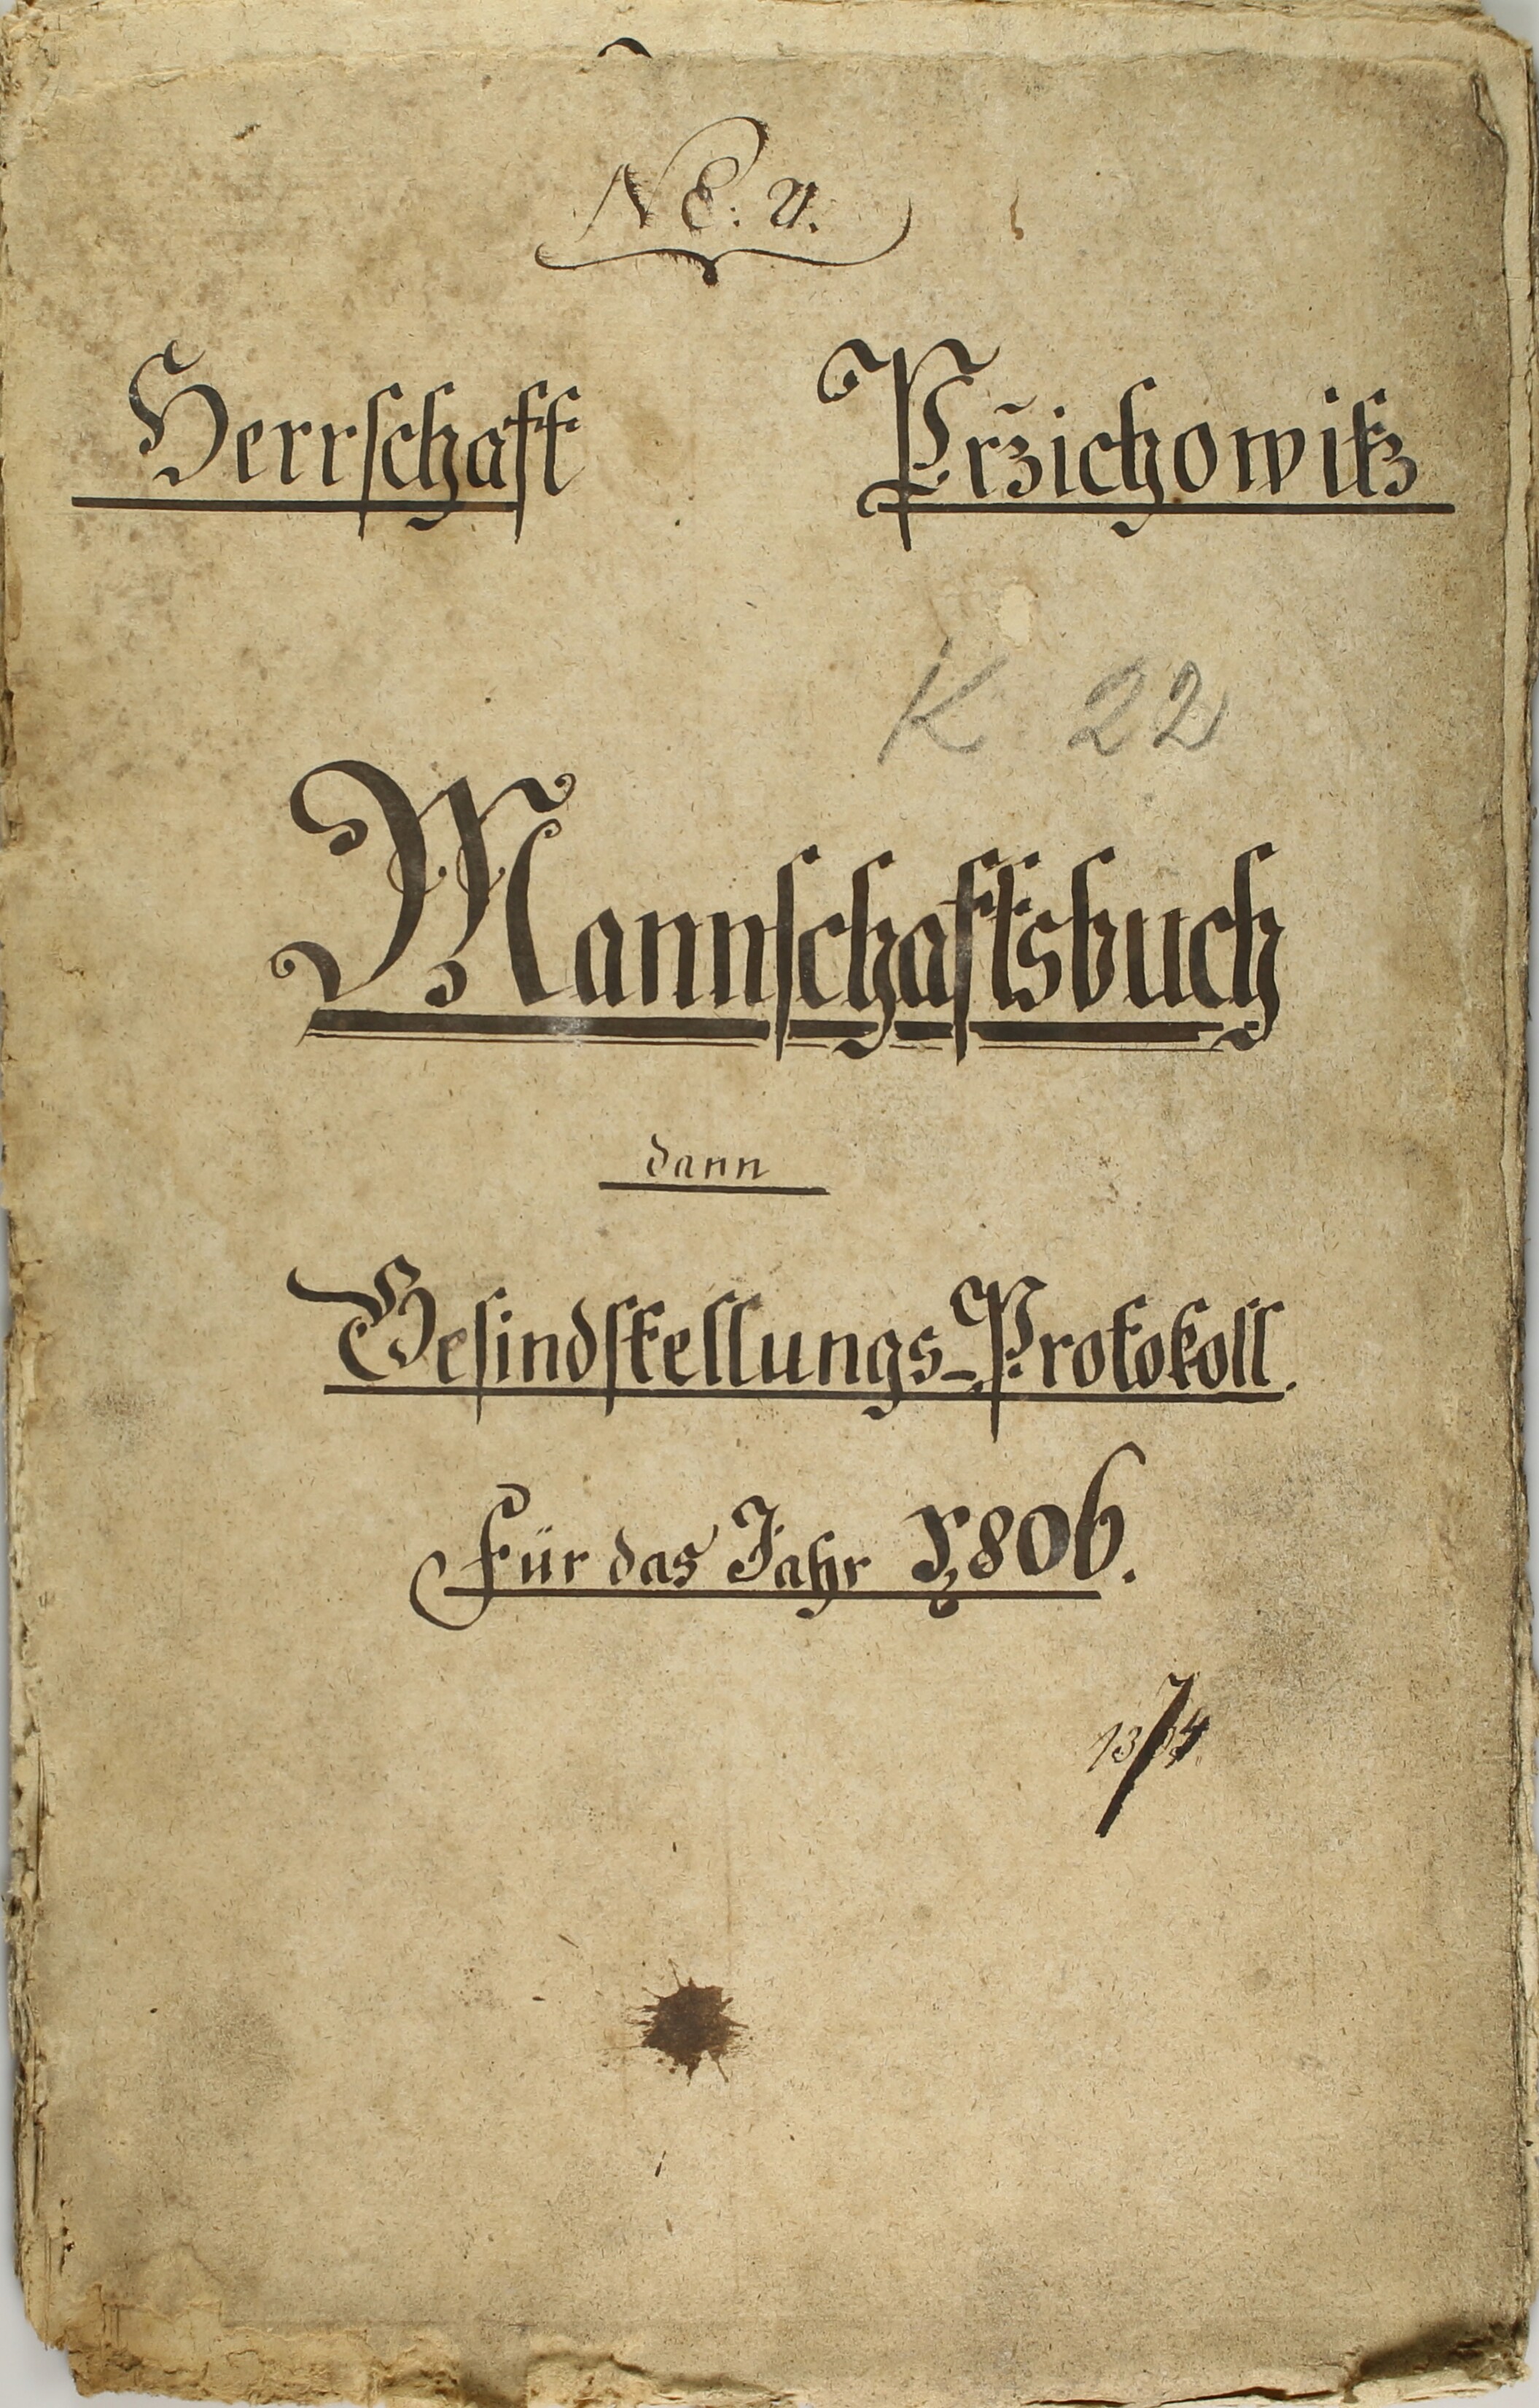 Herrschaft Przichowitz
K 22
Mannschaftsbuch
dann
Gesindstellungs-Protokoll.
Für das Jahr 1806.